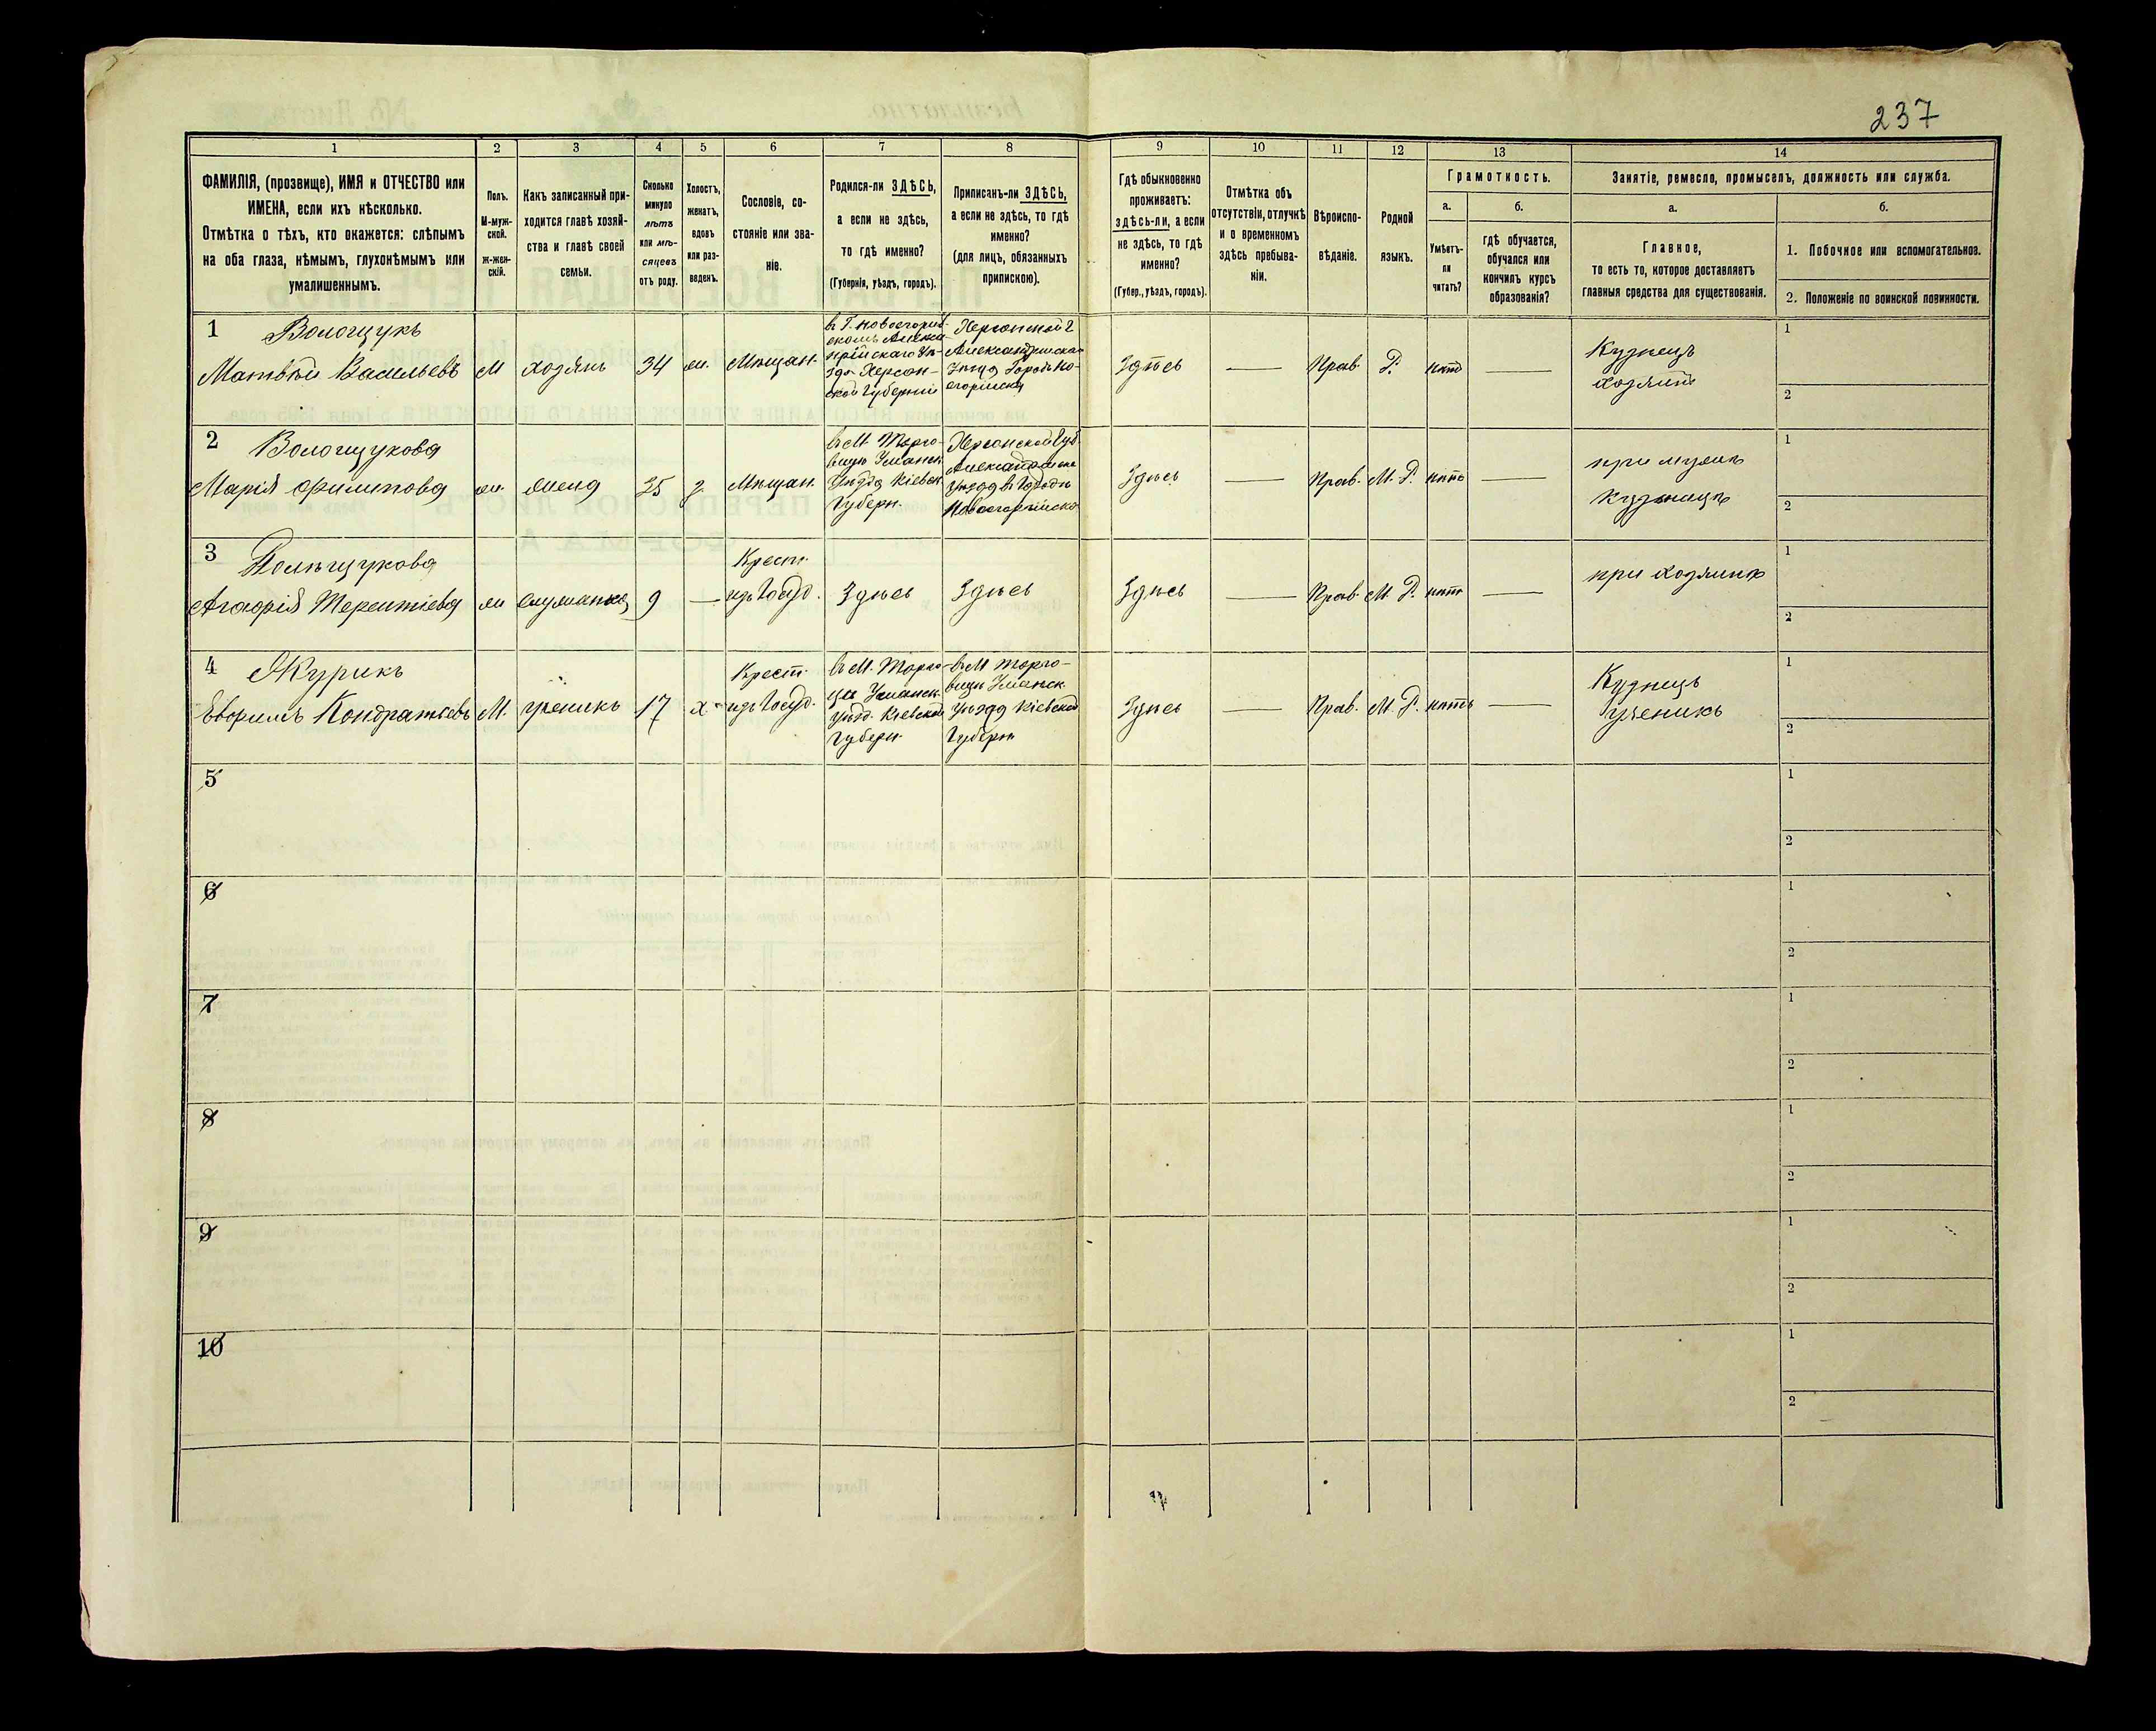 237
1 2 3 4 5 6 7 8 9 10 11 12 13 14
ФАМИЛІЯ, (прозвище), ИМЯ и ОТЧЕСТВО или
ИМЕНА, если ихъ нѣсколько.
Отмѣтка о тѣхъ, кто окажется: слѣпымъ
на оба глаза, нѣмымъ, глухонѣмымъ или
умалишеннымъ.
Полъ.
М-муж-
ской.
Ж-жен-
скій.
Какъ записанный при-
ходится главѣ хозяй-
ства и главѣ своей
семьи.
Сколько
минуло
лѣтъ
или мѣ-
сяцевъ
отъ роду.
Холостъ,
женатъ,
вдовъ
или раз-
веденъ.
Сословіе, со-
стояніе или зва-
ніе.
Родился-ли ЗДѢСЬ,
а если не здѣсь,
то гдѣ именно?
(Губернія, уѣздъ, городъ).
Приписанъ-ли ЗДѢСЬ,
а если не здѣсь, то гдѣ
именно?
(для лицъ, обязанныхъ
припискою).
Гдѣ обыкновенно
проживаетъ:
здѣсь-ли, а если
не здѣсь, то гдѣ
именно?
(Губер., уѣздъ, городъ).
Отмѣтка объ
отсутствіи, отлучкѣ
и о временномъ
здѣсь пребыва-
ніи.
Вѣроиспо-
вѣданіе.
Родной
языкъ.
Грамотность.
а.
Умѣетъ-
ли
читать?
б.
гдѣ обучается,
обучался или
кончилъ курсъ
образованія?
Занятіе, ремесло, промыселъ, должность или служба.
а.
Главное,
то есть то, которое доставляетъ
главныя средства для существованія.
б.
1. Побочное или вспомогательное.
2. Положеніе по воинской повинности.
1
Матвѣй Васильевъ
М
хозяинъ
34
Мѣщан.
Херсон-
ской Губерніи
Херсонской г
Здѣсь
—
Прав.
Р.
нѣтъ
—
Кузнецъ
хозяинъ
1
2
2
Марія Филипова
жена
35
з
Мѣщан.
въ М. Торго-
вицѣ Уманск.
Уѣзда Кіевск.
Губерн.
Херсонской Губ.
Здѣсь
Прав.
М. Р.
нѣтъ
—
при мужѣ
кузнецѣ
1
2
3
Агафія Терентіева
9
—
Крест.
изъ Госуд.
Здѣсь
Здѣсь
Здѣсь
—
Прав.
М. Р.
нѣтъ
—
при хозяинѣ
1
2
4 Журикъ
Евфимъ Кондратьевъ
М.
ученикъ
17
х
Крест.
изъ Госуд.
Уманск.
уѣзд. Кіевской
Губерн.
въ М Торго-
вицѣ Уманск.
Уѣзда Кіевской
Губерн
Здѣсь
—
Прав.
М. Р.
нѣтъ
—
Кузнецъ
ученикъ
1
2
5
1
2
6
1
2
7
1
2
8
1
2
9
1
2
10
1
2